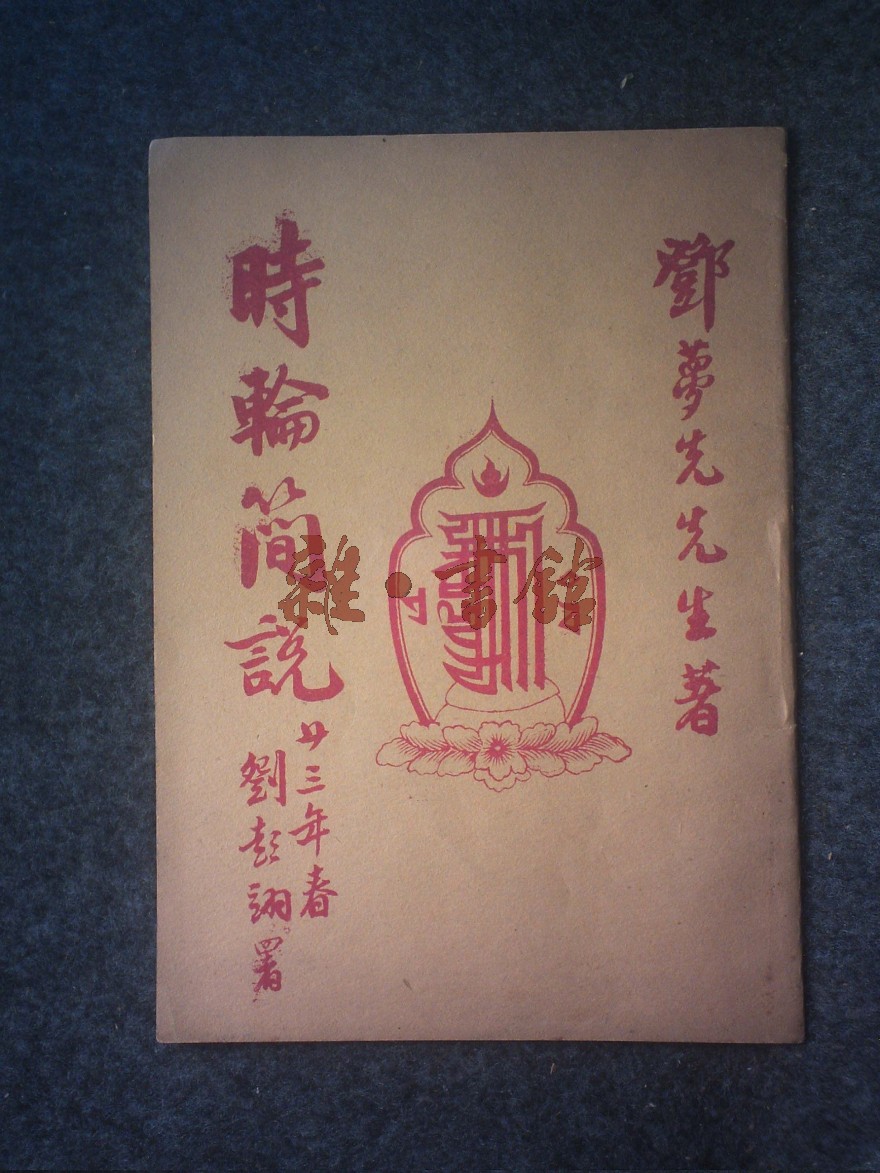 鄧夢先先生著
時輪簡説
廿三年春
劉彭翊署
雜·書館